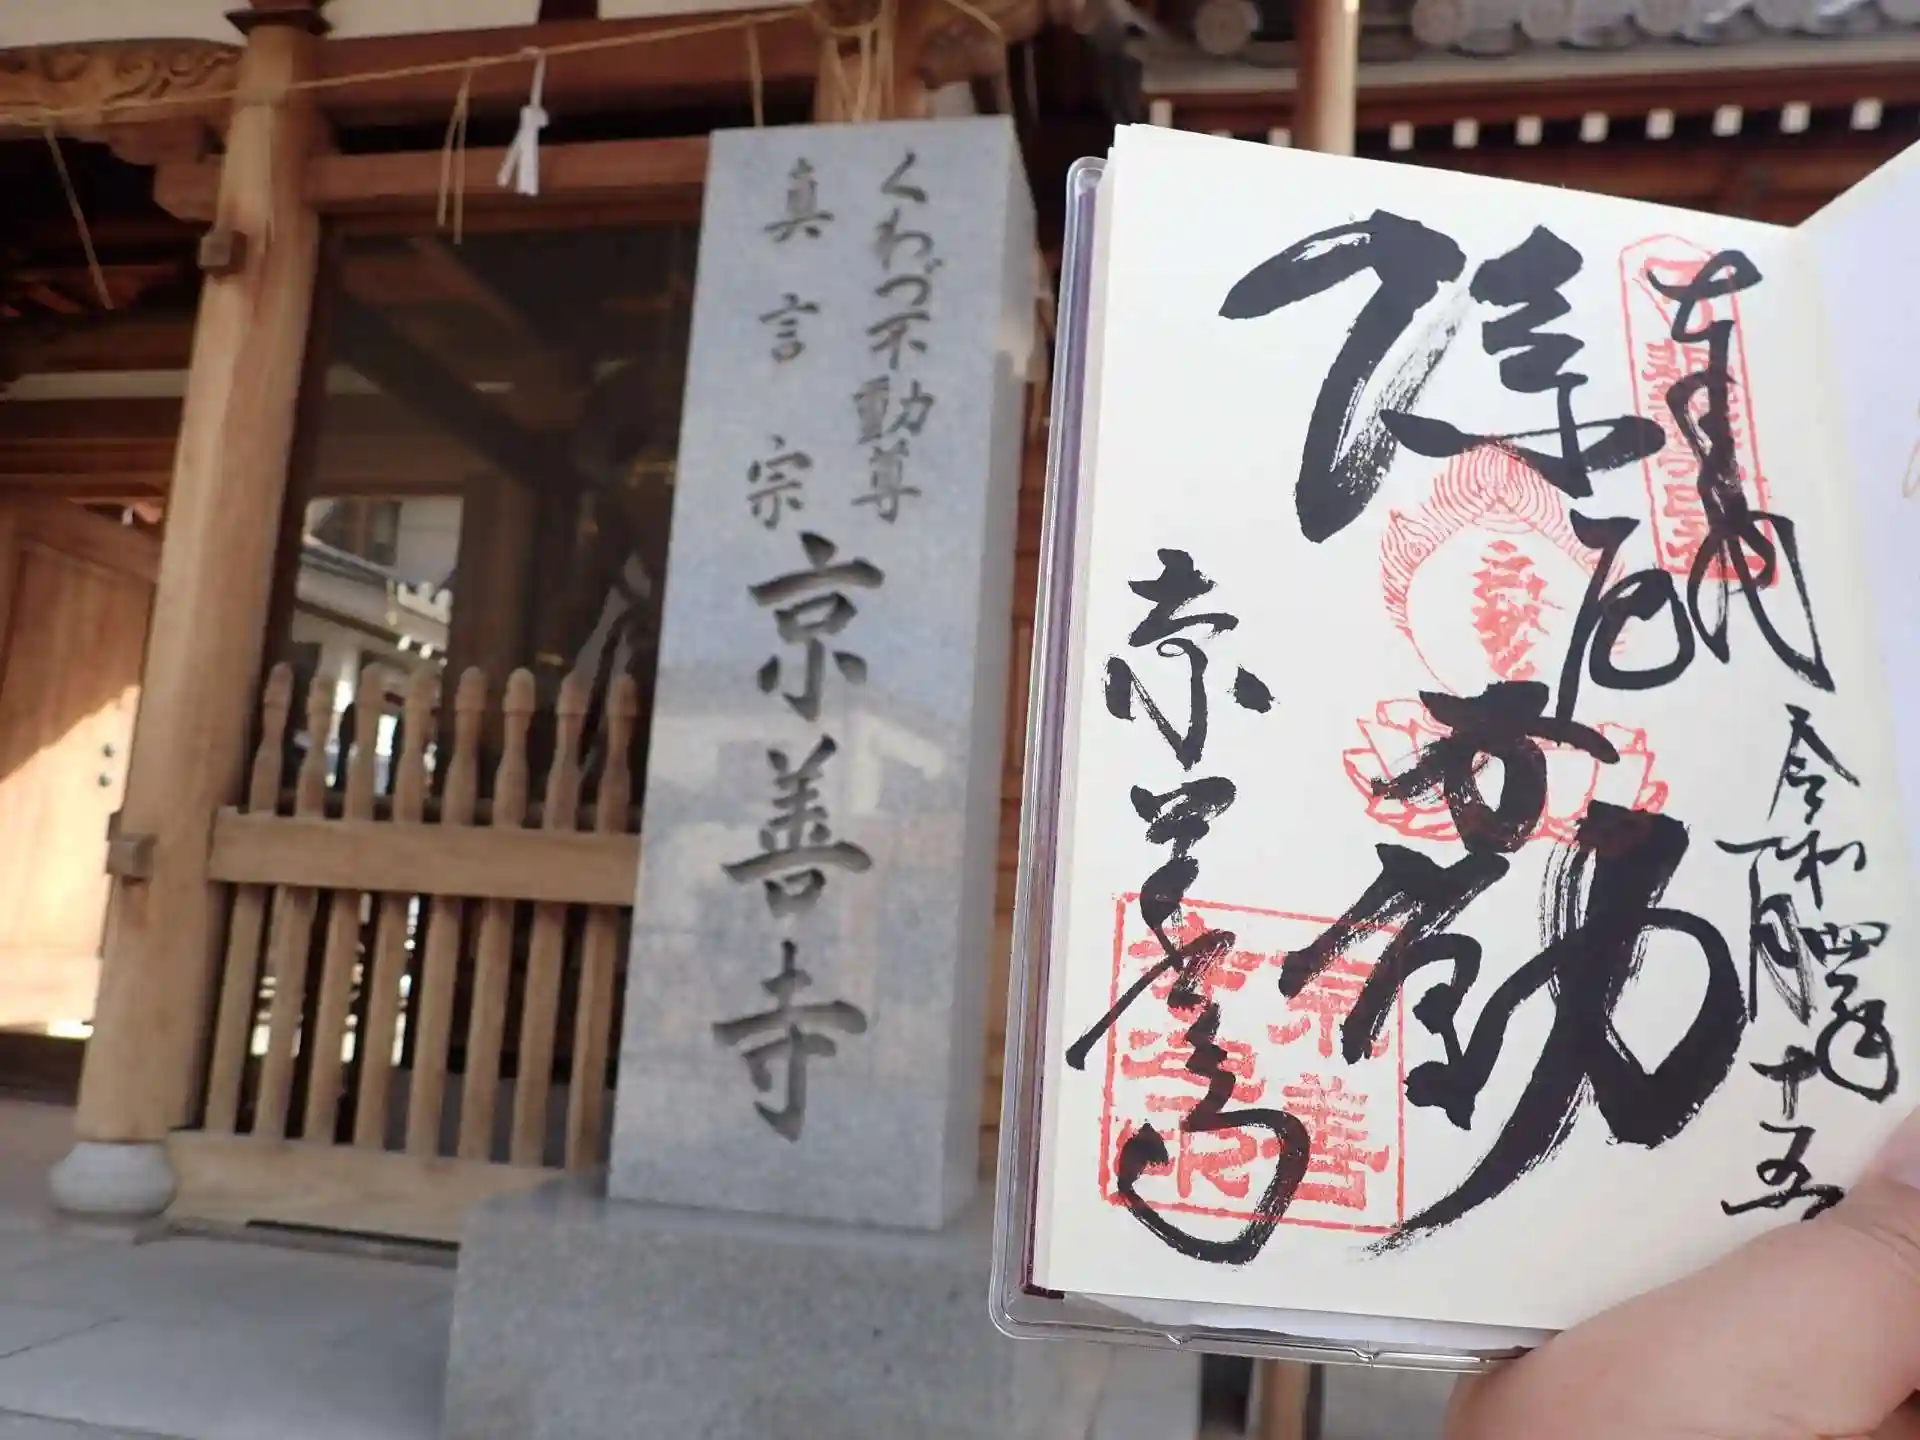 くわづ不動尊
真言宗
京善寺
奉拝
令和四年
一月十五
除厄
不動
京善寺